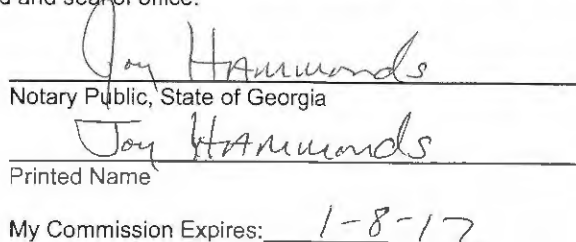 and seal of office.
Joy Hammonds
Notary Public, State of Georgia
Joy Hammonds
Printed Name
My Commission Expires: 1-8-17